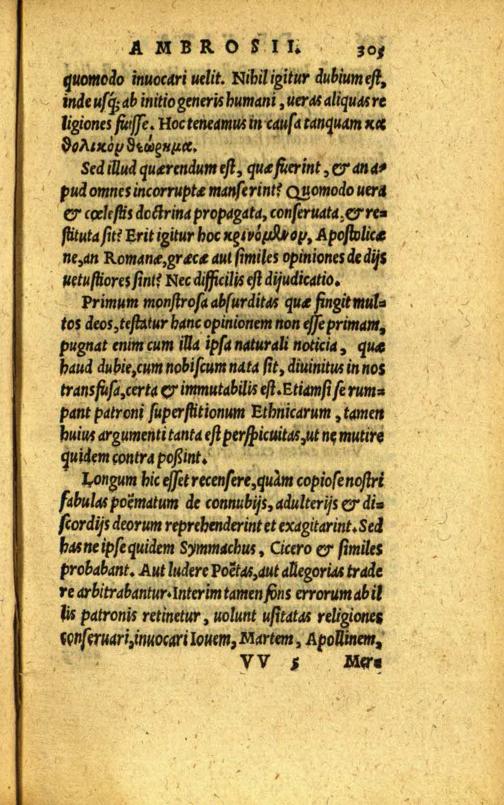 AMBROSII. 305
quomodo inuocari uelit. Nihil igitur dubium est,
inde usq; ab initio generis humani, ueras aliquas re
ligiones fuisse. Hoc teneamus in causa tanquam κα
θολικὸν θεώρημα.
Sed illud quærendum est, quæ fuerint, & an a⸗
pud omnes incorruptæ manserint? Quomodo uera
& cœlestis doctrina propagata, conseruata, & re⸗
stituta sit? Erit igitur hoc κρινόμενον, Apostolicæ
ne, an Romanæ, græcæ aut similes opiniones de dijs
uetustiores sint? Nec difficilis est dijudicatio.
Primum monstrosa absurditas quæ fingit mul⸗
tos deos, testatur hanc opinionem non esse primam,
pugnat enim cum illa ipsa naturali noticia, quæ
haud dubie, cum nobiscum nata sit, diuinitus in nos
transfusa, certa & immutabilis est. Etiamsi se rum⸗
pant patroni superstitionum Ethnicarum, tamen
huius argumenti tanta est perspicuitas, ut ne mutire
quidem contra poßint.
Longum hic esset recensere, quàm copiose nostri
fabulas poëmatum de connubijs, adulterijs & di⸗
scordijs deorum reprehenderint et exagitarint. Sed
has ne ipse quidem Symmachus, Cicero & similes
probabant. Aut ludere Poëtas, aut allegorias trade
re arbitrabantur. Interim tamen fons errorum ab il
lis patronis retinetur, uolunt usitatas religiones
conseruari, inuocari Iouem, Martem, Apollinem,
VV 5 Mer⸗